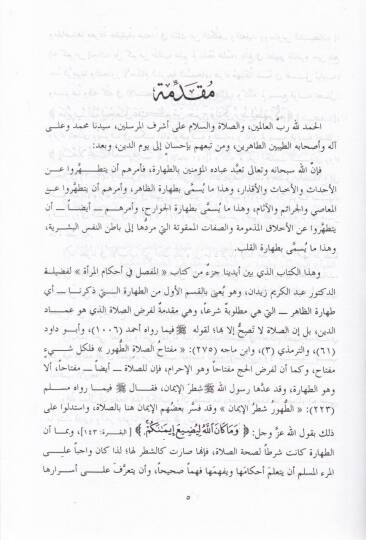 مُقَدِّمَة
الحمد لله ربِّ العالمين، والصلاة والسلام على أشرف المرسلين، سيدنا محمد وعلى
آله وأصحابه الطيبين الطاهرين، ومن تبعهم بإحسانٍ إلى يوم الدين، وبعد:
فإنَّ الله سبحانه وتعالى تعبَّد عباده المؤمنين بالطهارة، فأمرهم أن يتطهَّروا عن
الأحداث والأخباث والأقذار، وهذا ما يُسمَّى بطهارة الظاهر، وأمرهم أن يتطهَّروا عن
المعاصي والجرائم والآثام، وهذا ما يُسمَّى بطهارة الجوارح، وأمرهم ــ أيضاً ــ أن
يتطهَّروا عن الأخلاق المذمومة والصفات الممقوتة التي مردها إلى باطن النفس البشرية،
وهذا ما يُسمَّى بطهارة القلب.
وهذا الكتاب الذي بين أيدينا جزءٌ من كتاب « المفصل في أحكام المرأة » لفضيلة
الدكتور عبد الكريم زيدان، وهو يُعنى بالقسم الأول من الطهارة التي ذكرنا ــ أي
طهارة الظاهر ــ التي هي مطلوبةٌ شرعاً، وهي مقدمةٌ لفرض الصلاة الذي هو عماد
الدين، بل إن الصلاة لا تصحُّ إلا بها؛ لقوله ﷺ فيما رواه أحمد (١٠٠٦)، وأبو داود
(٦١)، والترمذي (٣)، وابن ماجه (٢٧٥): « مفتاحُ الصلاة الطُّهور » فلكل شيءٍ
مفتاح، وكما أن لفرض الحج مفتاحاً وهو الإحرام، فإن للصلاة ــ أيضاً ــ مفتاحاً، ألا
وهو الطهارة، وقد عدَّها رسول الله ﷺ شطرَ الإيمان، فقال ﷺ فيما رواه مسلم
(٢٢٣): « الطُّهورُ شطرُ الإيمان » وقد فسَّر بعضُهم الإيمان هنا بالصلاة، واستدلوا على
ذلك بقول الله عزَّ وجل: ﴿ وَمَا كَانَ ٱللَّهُ لِيُضِيعَ إِيمَٰنَكُمْ ﴾ [البقرة: ١٤٣]، وبما أن
الطهارة كانت شرطاً لصحة الصلاة، فإنها صارت كالشطر لها؛ لذا كان واجباً على
المرء المسلم أن يتعلمَ أحكامَها ويفهمَها فهماً صحيحاً، وأن يتعرَّفَ على أسرارها
٥